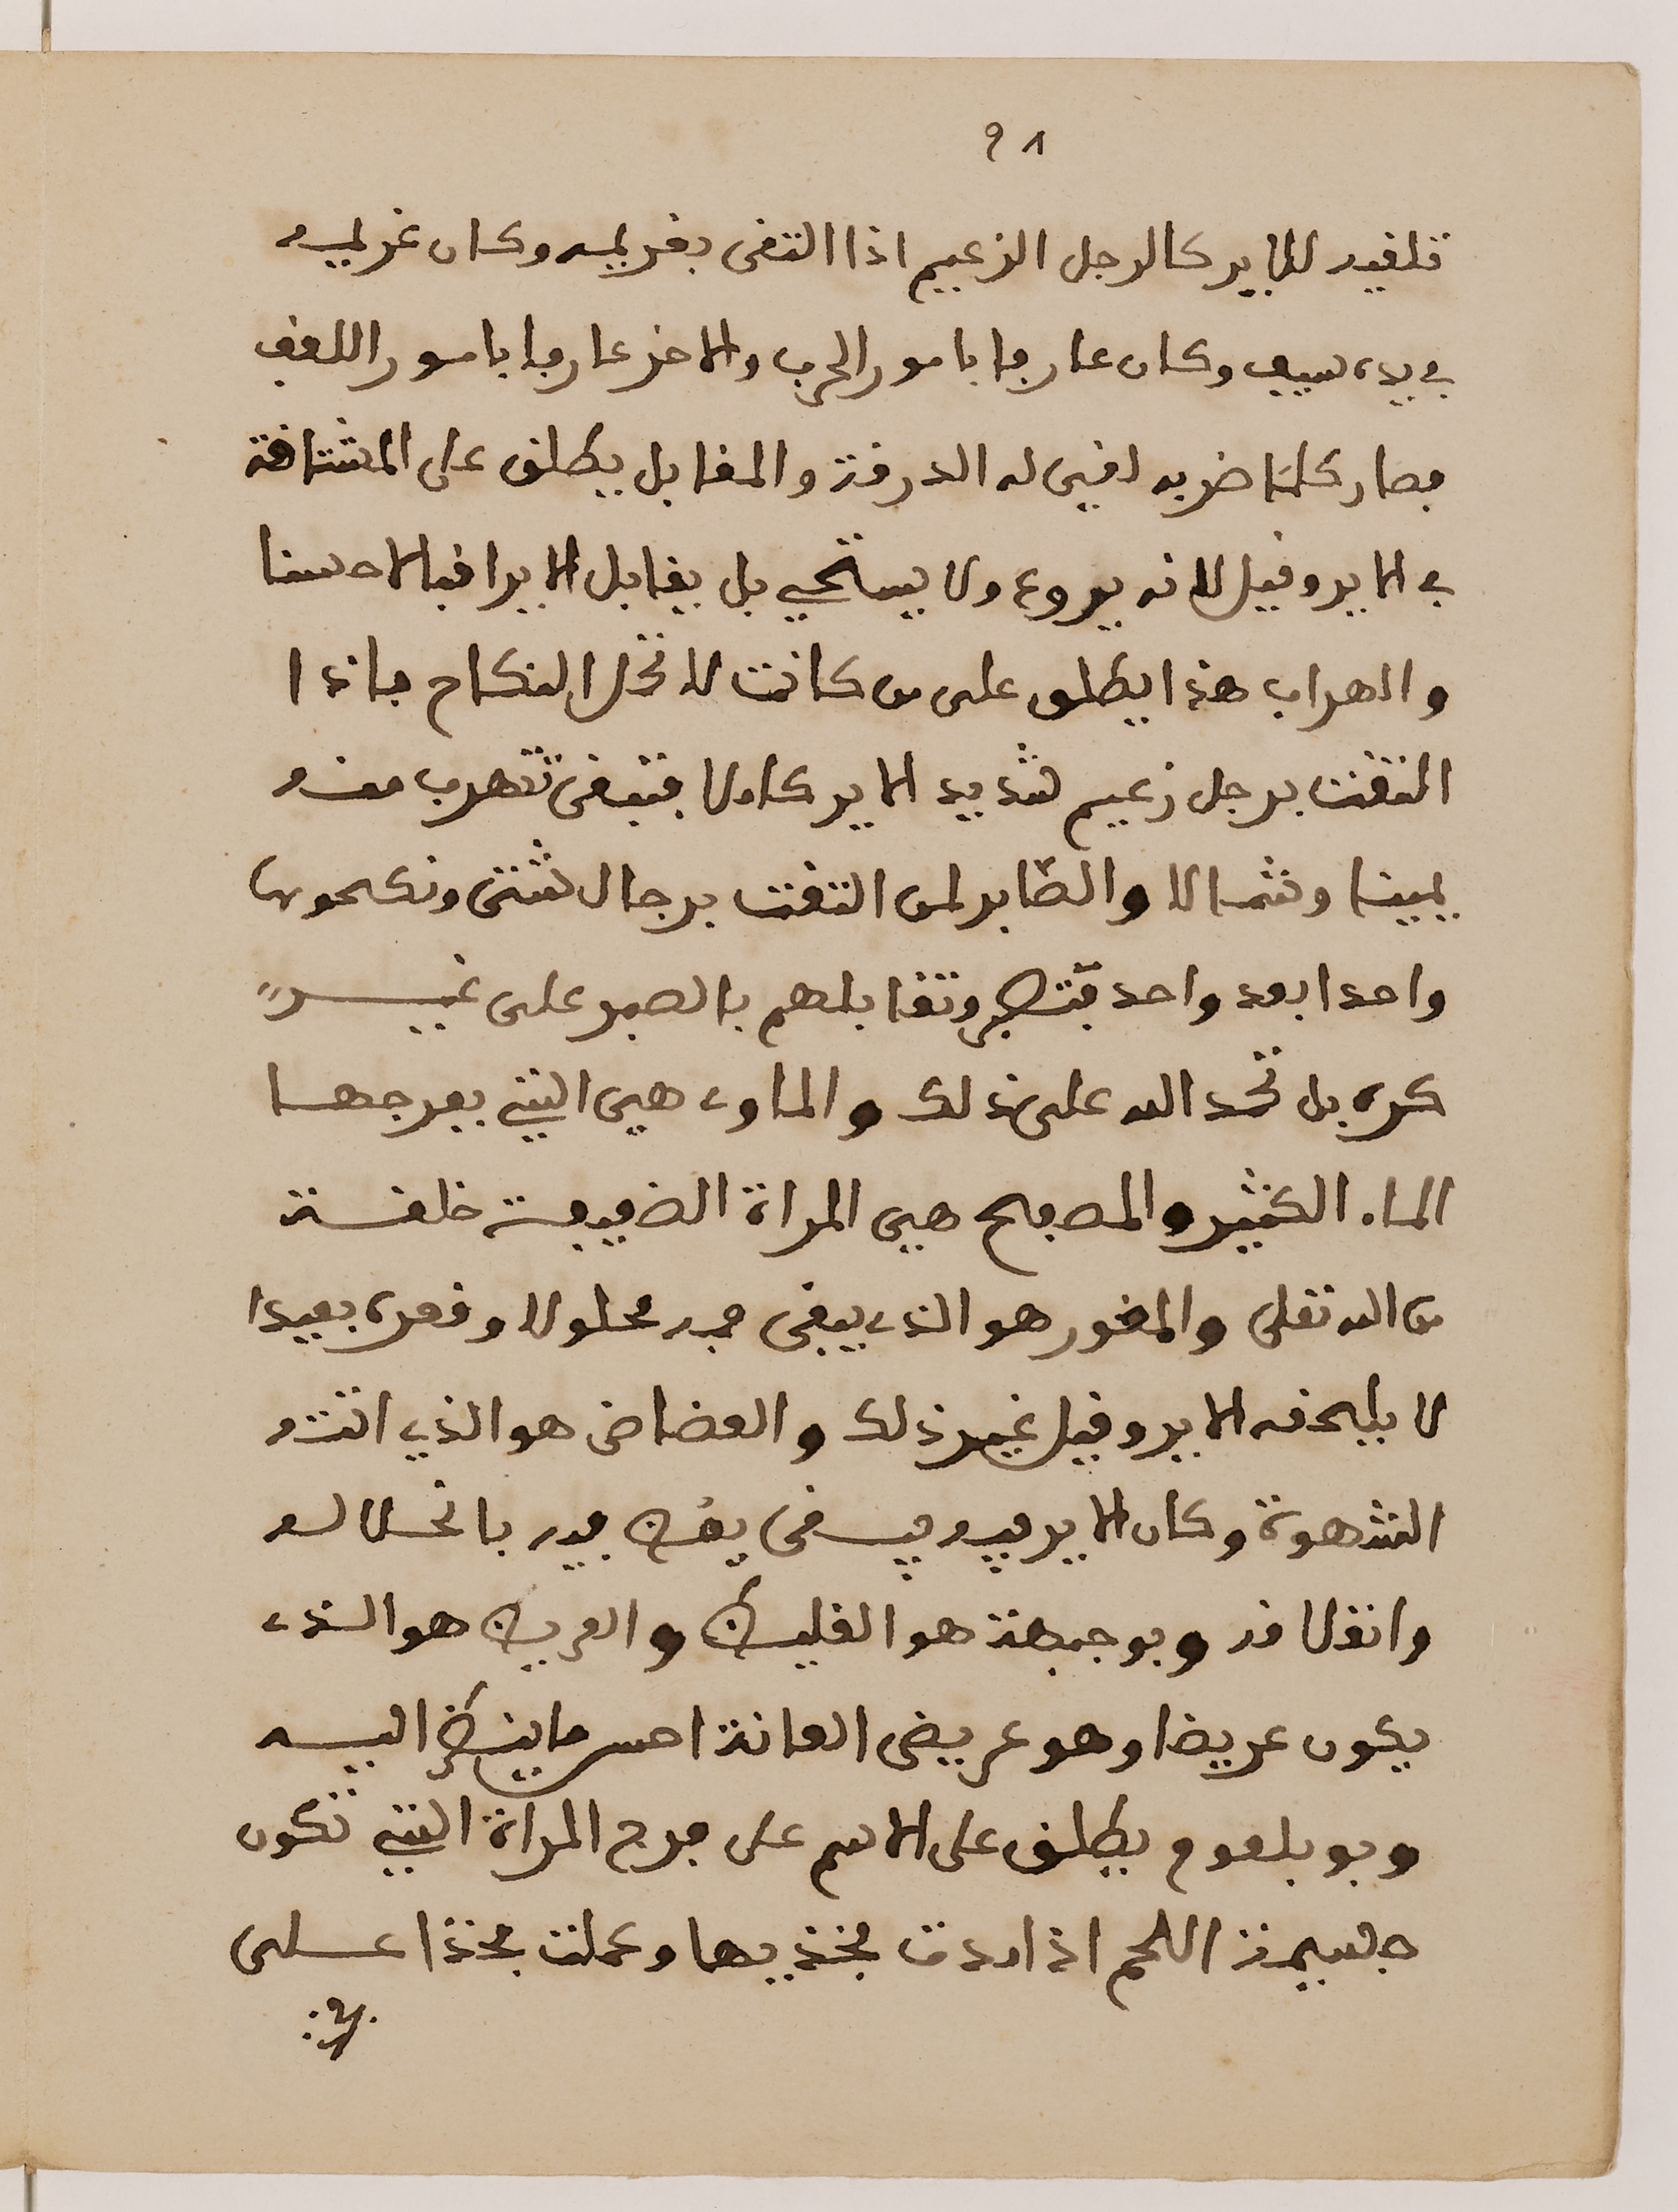 ٩٨
تلقيه للاير كالرجل الزعيم اذا التقى بغريمه وكان غريمه
في يده سيف وكان عارفا بامور الحرب والاخر عارفا بامور اللقف
فصار كلما ضربه لقيى له الدرقة والمقابل يطلق على المشتاقة
في الاير وقيل لانه يروع ولا يستحي بل يقابل الاير اقبالا حسنا
والهراب هذا يطلق على من كانت لا تحمل النكاح فاذا
التقت برجل زعيم شديد الاير كاملا فتبقى تهرب منه
يمينا وشمالا والصابر لمن التقت برجال شتى ونكحوها
واحدا بعد واحد فتصبر وتقابلهم بالصبر على غير
كره بل تحمد الله على ذلك والماوي هي التي بفرجها
الماء الكثير والمصفح هي المراة الضيقة خلقة
من الله تعلى والمغور هو الذي يبقى فمه محلولا وقعره بعيدا
لا يلحقه الاير وقيل غير ذلك والعضاض هو الذي اتته
الشهوة وكان الاير فيه يبقى يعض فيه بانحلاله
وانغلاقه وبو جبهة هو الغليظ والعريض هو الذي
يكون عريضا وهو عريض العانة احسن ما ينظر اليه
وبو بلعوم يطلق على الاسم على فرج المراة التي تكون
جسيمة اللحم اذا اردت فخذيها وعملت فخذا على